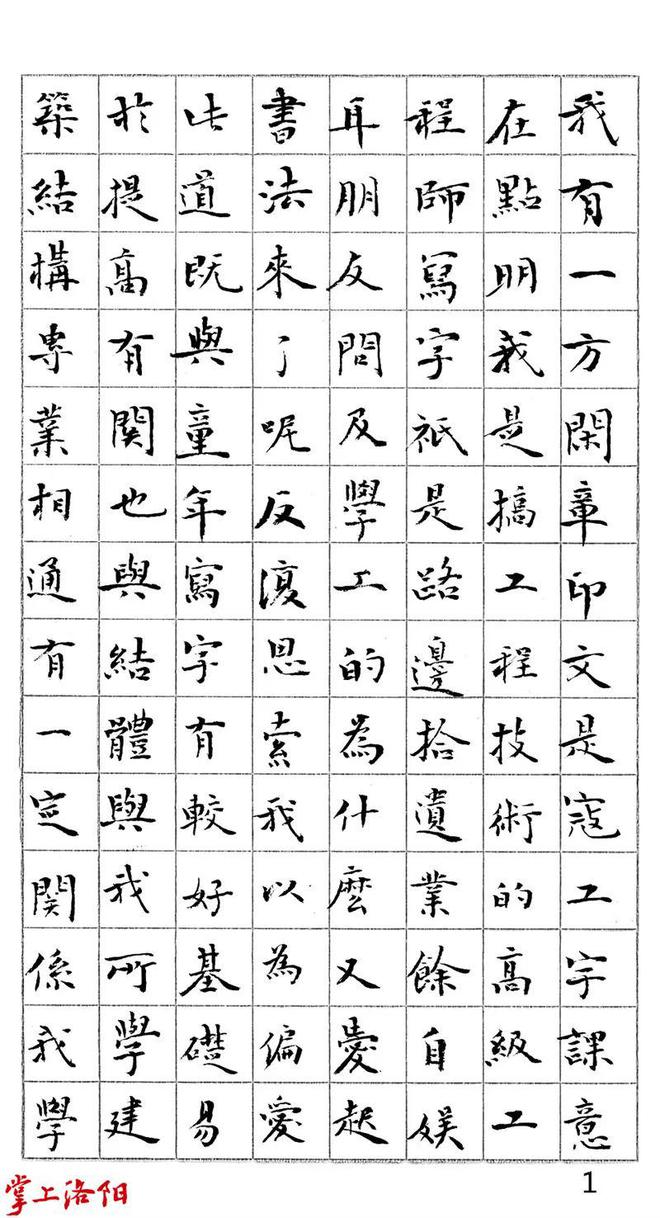 我有一方閑章印文是寇工字課意
在點明我是搞工程技術的高級工
程師寫字祇是路邊拾遺業餘自娱
耳朋友問及學工的為什麽又愛起
書法來了呢反復思索我以為偏愛
此道既與童年寫字有較好基礎易
於提高有関也與結體與我所學建
築結構專業相通有一定関係我學
掌上洛阳
1